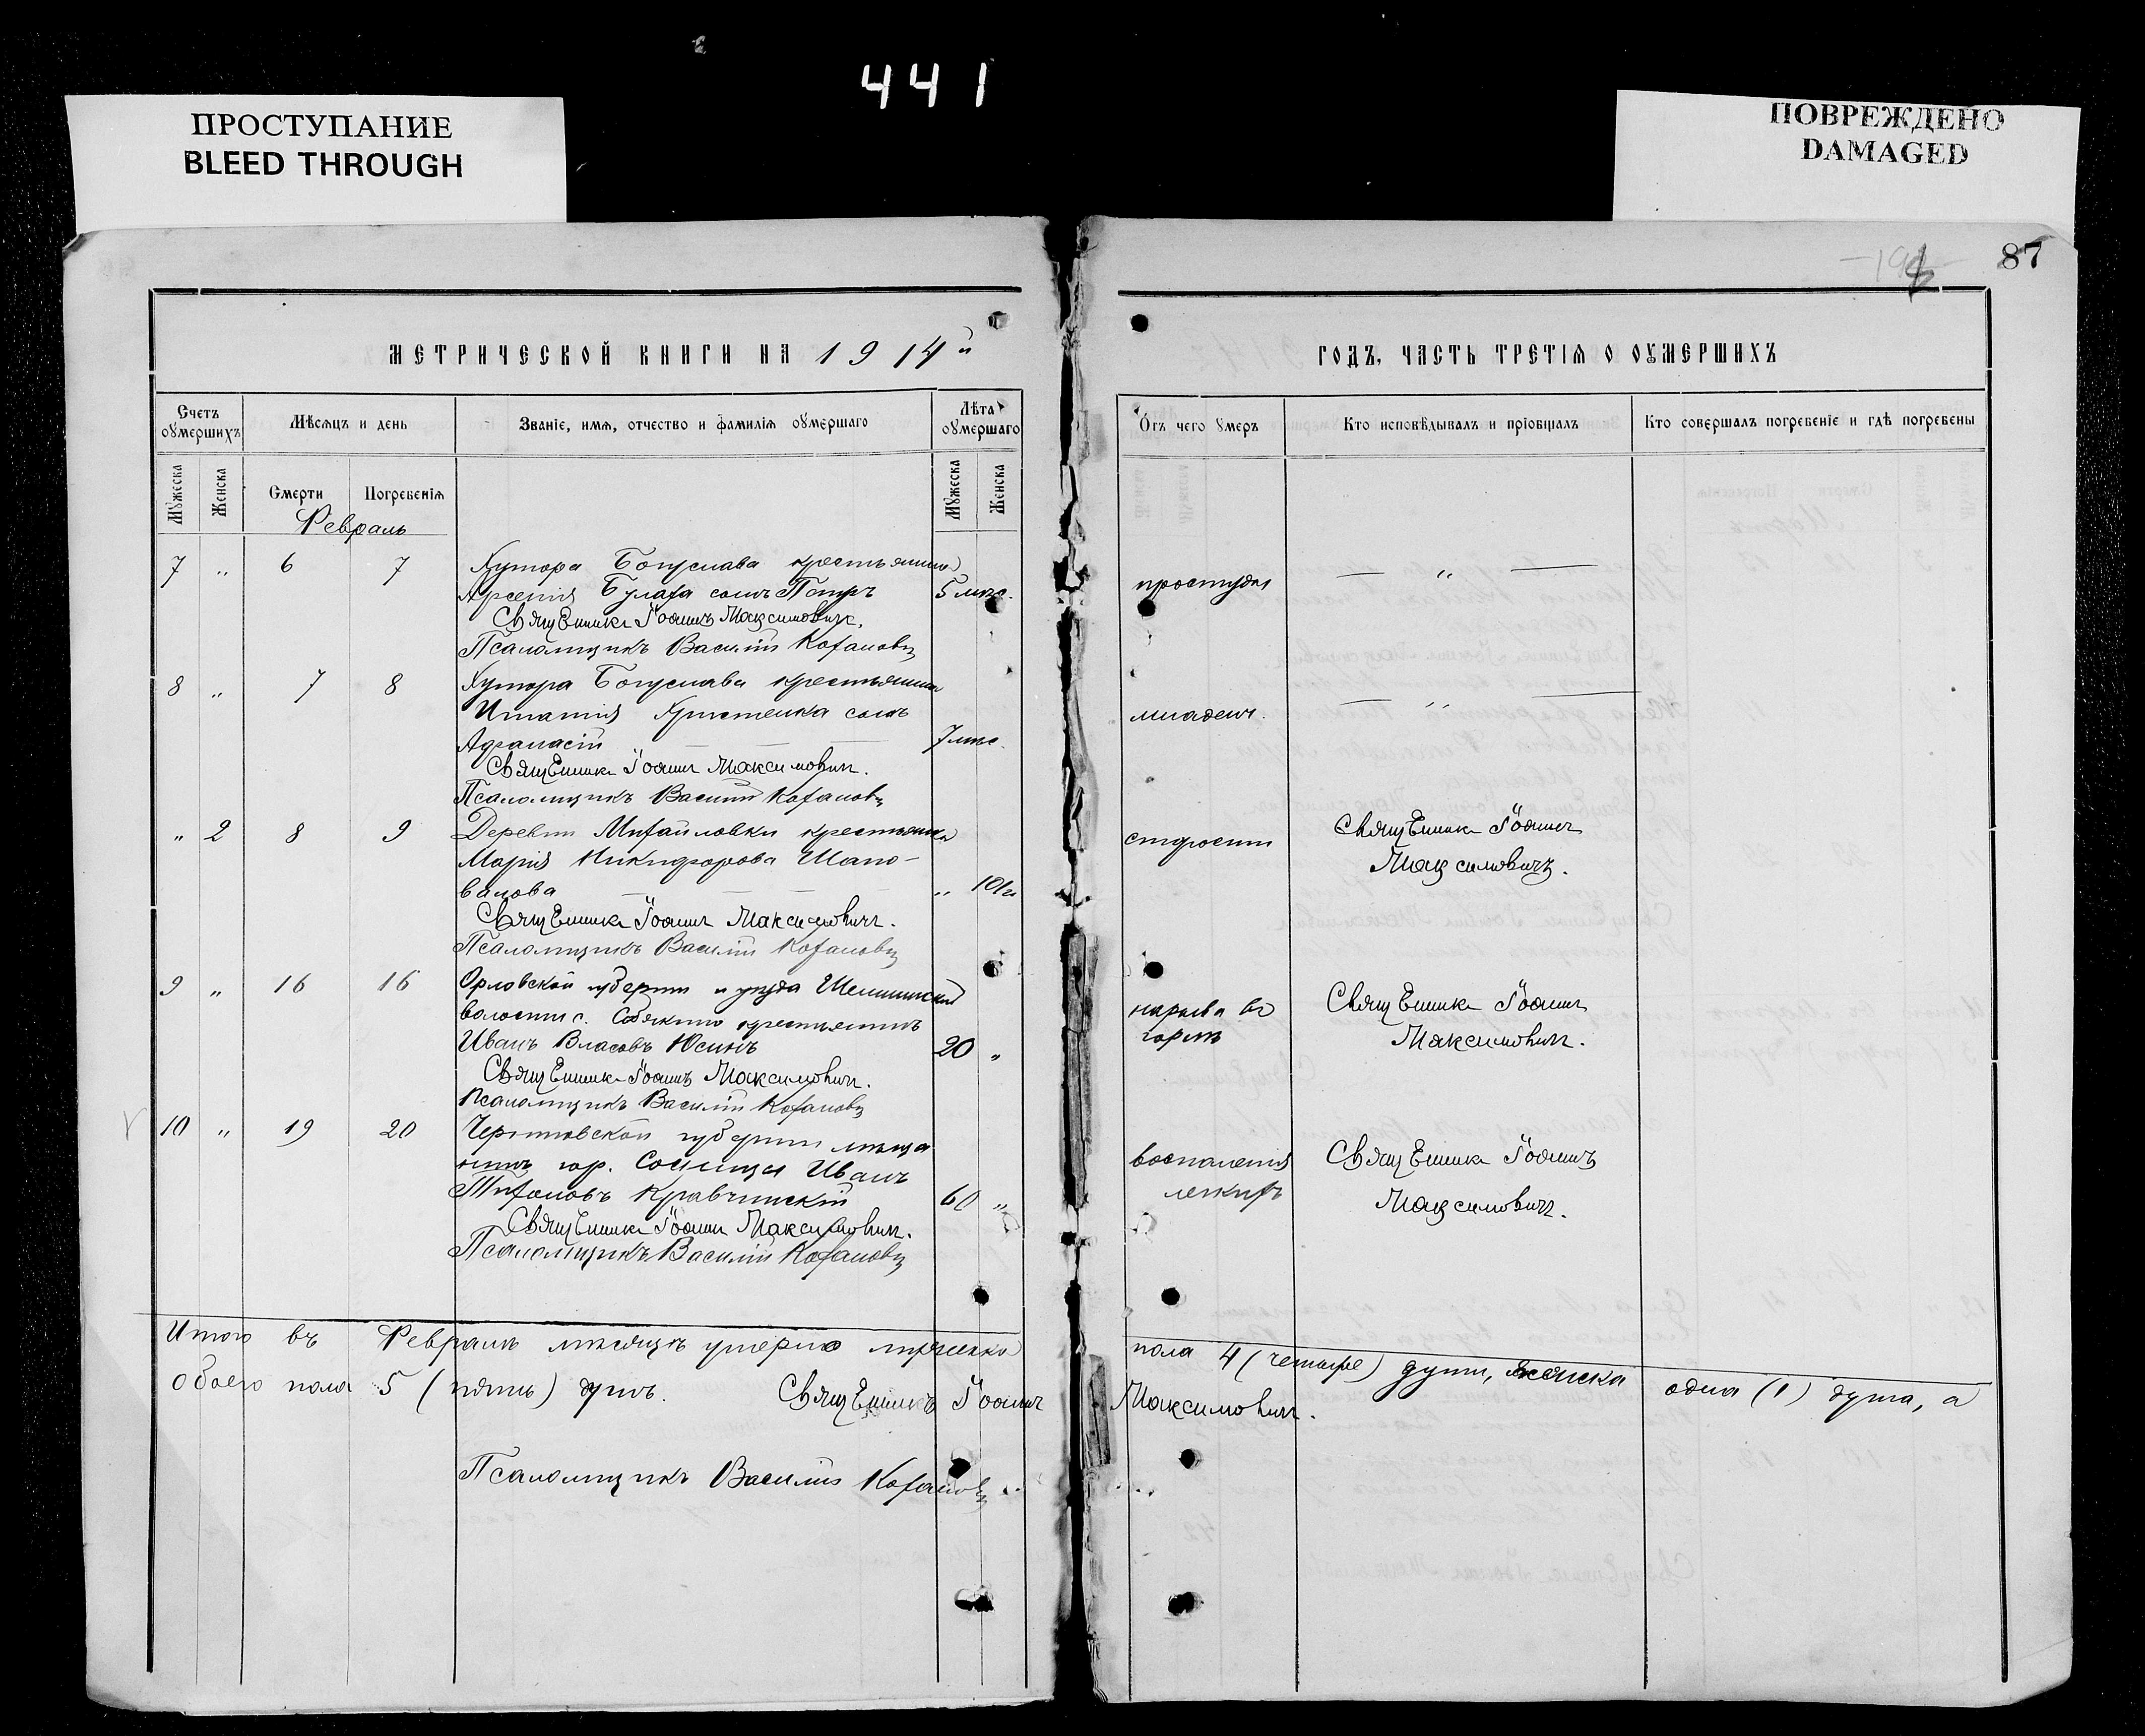 441
ПРОСТУПАНИЕ
BLEED THROUGH
ПОВРЕЖДЕНО
DAMAGED
87
МЕТРИЧЕСКОЙ КНИГИ НА 1914й
ГОДЪ, ЧАСТЬ ТРЕТІѦ О ОУМЕРШИХЪ
Счетъ оумершихъ
Мѣсѧцъ и день
Званіе, имѧ, отчество и фамиліѧ оумершаго
Лѣта оумершаго
Отъ чего умеръ
Кто исповѣдывалъ и пріобщалъ
Кто совершалъ погребеніе и гдѣ погребены
Мужеска
Женска
Смерти
Погребеніѧ
Мужеска
Женска
Февраль
7 „ 6 7 Хутора Богуслава крестьянина
Арсенія Булаха сынъ Петръ 5 мѣс. простуды — „ —
Священникъ Іоаннъ Максимовичъ.
Псаломщикъ Василій Кохановъ
8 „ 7 8 Хутора Богуслава крестьянина
Игнатія Христенка сынъ младенч. — „ —
Афанасій — — — 7 мѣс.
Священникъ Іоаннъ Максимовичъ.
Псаломщикъ Василій Кохановъ
„ 2 8 9 Деревни Михайловки крестьянка старости Священникъ Іоаннъ
Марія Никифорова Шапо- Максимовичъ.
валова — — — „ 101
Священникъ Іоаннъ Максимовичъ.
Псаломщикъ Василій Кохановъ
9 „ 16 16 Орловской губерніи и уѣзда нарыва въ Священникъ Іоаннъ
волости с. крестьянинъ горлѣ Максимовичъ.
Иванъ Власовъ Юсинъ 20 „
Священникъ Іоаннъ Максимовичъ.
Псаломщикъ Василій Кохановъ
10 „ 19 20 Черниговской губерніи мѣща
нинъ гор. Сосницы Иванъ воспаленія Священникъ Іоаннъ
Тихоновъ Кравчинскій 60 „ легкихъ Максимовичъ.
Священникъ Іоаннъ Максимовичъ.
Псаломщикъ Василій Кохановъ
Итого въ Февралѣ мѣсяцѣ умерло мужеска пола 4 (четыре) души, женска одна (1) душа, а
обоего пола 5 (пять) душъ. Священникъ Іоаннъ Максимовичъ.
Псаломщикъ Василій Кохановъ